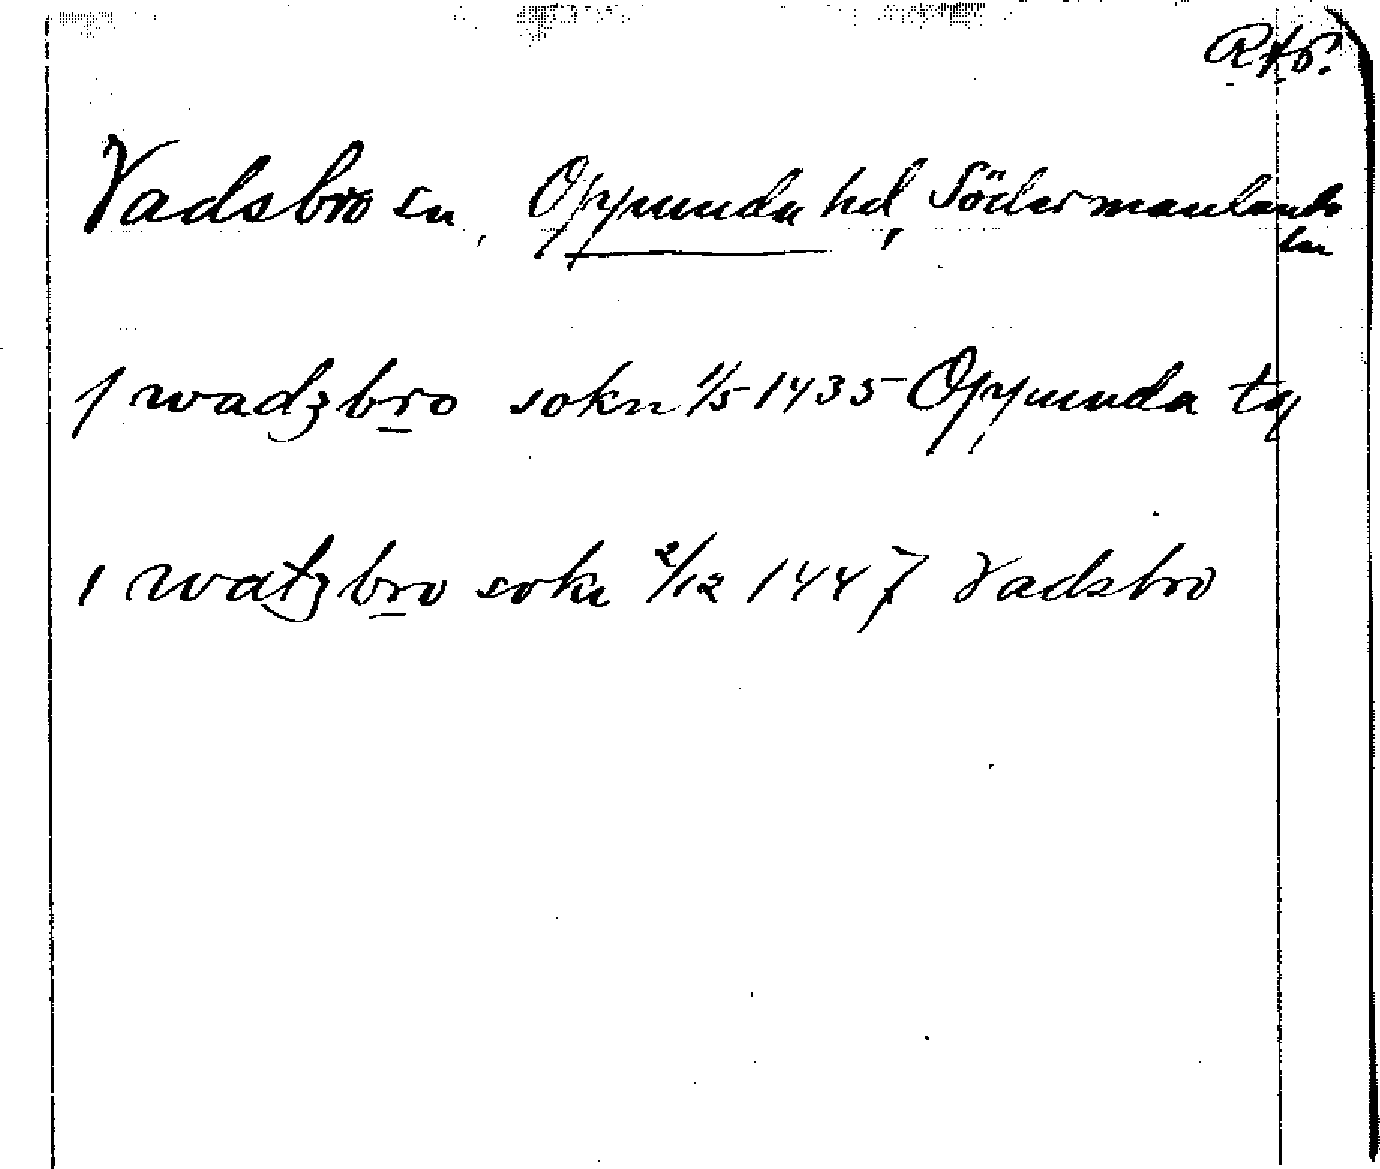 RAP.
Vadsbro sn, Oppunda hd, Södermanlands
län
j wadzbro sokn 1/5 1435 Oppunda tg
i watzbro sokn 2/12 1447 Vadsbro